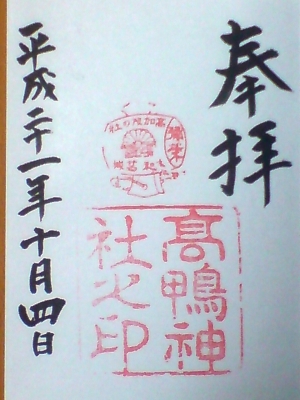 奉拝
高鴨神
社之印
平成二十一年十月四日